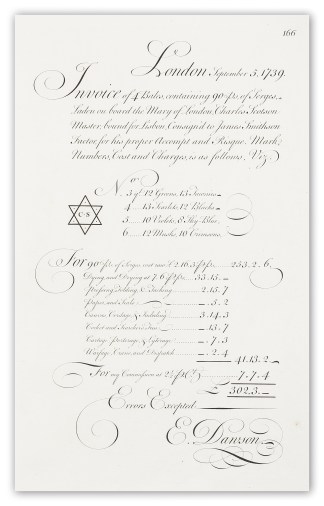 166
London September 5, 1739.
Invoice of 4 Bales, containing 90 ps. of Serges,
Laden on board the Mary of London, Charles Seaton
Master, bound for Lisbon, Consign'd to James Smithson
Factor, for his proper Accompt and Risque. Mark,
Numbers, Cost and Charges, is as follows, Viz.
No.
3 12 Greens, 13
C·S
4 13 Scarlets, 12 Blacks
5 10 Violets, 8 Sky-Blue
6 12 Musks, 10 Crimsons.
For 90 ps. of Serges cost 253.2.6.
Dying and at 7.6 33.15.–
Pressing 2.15.7
Paper, and –.5.2
Canvas, Cordage, & 3.14.3
–.13.7
Cartage, Porterage, & –.7.3
Wharfage, Crane and Dispatch –.2.4
41.13.2
For my Commission at 7.7.4
£ 302.3.–
Errors Excepted
E. Dawson.